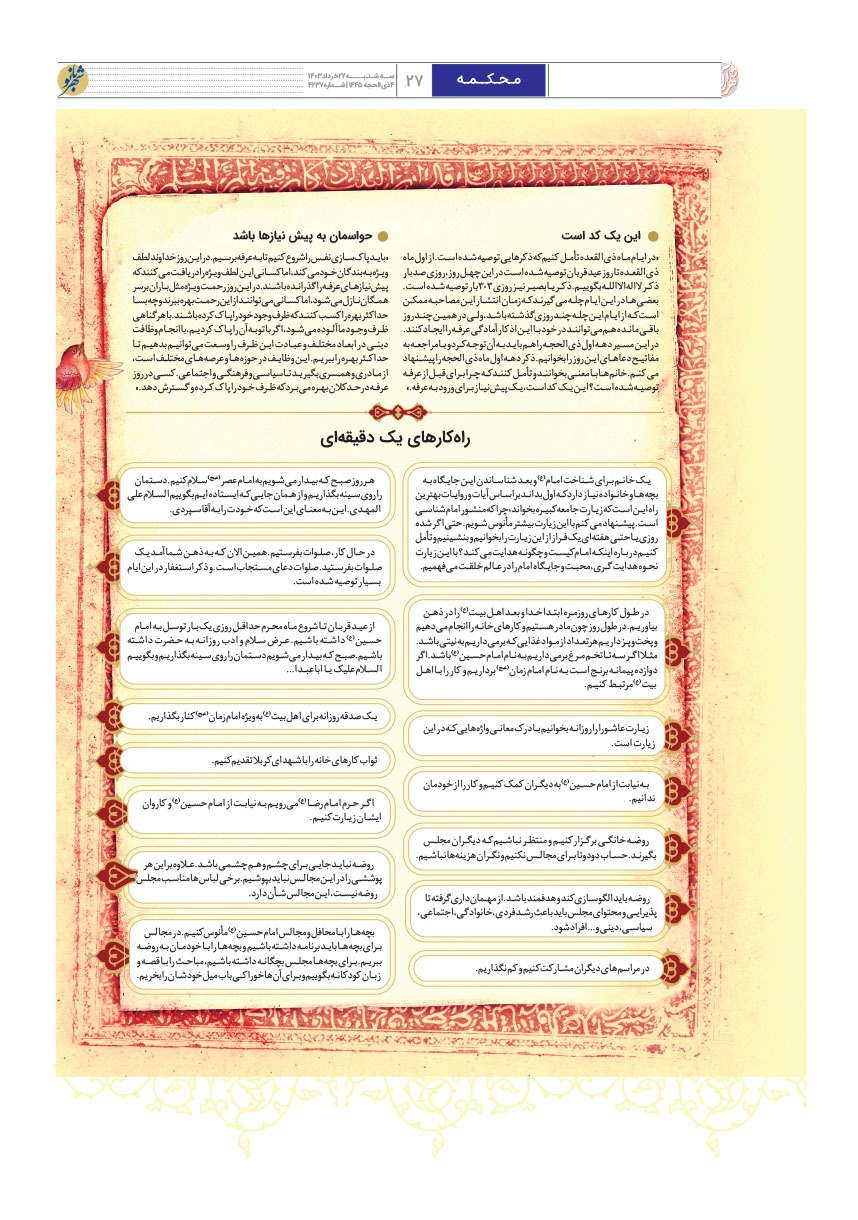 محکمه
۲۷
سه شنبه ۲۲ خرداد ۱۴۰۳
۴ ذی الحجه ۱۴۴۵ | شماره ۴۲۳۷
شهربانو
این یک کد است
«در ایام ماه ذی القعده تأمل کنیم که ذکرهایی توصیه شده است. از اول ماه
ذی القعده تا روز عید قربان توصیه شده است در این چهل روز، روزی صدبار
ذکر لااله الاالله بگوییم. ذکر یا بصیر نیز روزی ۳۰۲ بار توصیه شده است.
بعضی ها در این ایام چله می گیرند که زمان انتشار این مصاحبه ممکن
است که از ایام این چله چند روزی گذشته باشد، ولی در همین چند روز
باقی مانده هم می توانند در خود با این اذکار آمادگی عرفه را ایجاد کنند.
در این مسیر دهه اول ذی الحجه را هم باید به آن توجه کرد و با مراجعه به
مفاتیح دعاهای این روز را بخوانیم. ذکر دهه اول ماه ذی الحجه را پیشنهاد
می کنم. خانم ها با معنی بخوانند و تأمل کنند که چرا برای قبل از عرفه
توصیه شده است؟ این یک کد است، یک پیش نیاز برای ورود به عرفه.»
حواسمان به پیش نیازها باشد
«باید پاک سازی نفس را شروع کنیم تا به عرفه برسیم. در این روز خداوند لطف
ویژه به بندگان خود می کند، اما کسانی این لطف ویژه را دریافت می کنند که
پیش نیازهای عرفه را گذرانده باشند. در این روز رحمت ویژه مثل باران بر سر
همگان نازل می شود، اما کسانی می توانند از این رحمت بهره ببرند و چه بسا
حداکثر بهره را کسب کنند که ظرف وجود خود را پاک کرده باشند. با هر گناهی
ظرف وجود ما آلوده می شود، اگر با توبه آن را پاک کردیم، با انجام وظافت
دینی در ابعاد مختلف و عبادت این ظرف را وسعت می توانیم بدهیم تا
حداکثر بهره را ببریم. این وظایف در حوزه ها و عرصه های مختلف است،
از مادری و همسری بگیرید تا سیاسی و فرهنگی و اجتماعی. کسی در روز
عرفه در حد کلان بهره می برد که ظرف خود را پاک کرده و گسترش دهد.»
راه‌کارهای یک دقیقه‌ای
یک خانم برای شناخت امام(ع) و بعد شناساندن این جایگاه به
بچه ها و خانواده نیاز دارد که اول بداند بر اساس آیات و روایات بهترین
راه این است که زیارت جامعه کبیره بخواند، چراکه منشور امام شناسی
است. پیشنهاد می کنم با این زیارت بیشتر مأنوس شویم. حتی اگر شده
روزی یا حتی هفته ای یک فراز از این زیارت را بخوانیم و بنشینیم و تأمل
کنیم درباره اینکه امام کیست و چگونه هدایت می کند؟ با این زیارت
نحوه هدایت گری، محبت و جایگاه امام را در عالم خلقت می فهمیم.
در طول کارهای روزمره ابتدا خدا و بعد اهل بیت(ع) را در ذهن
بیاوریم. در طول روز چون مادر هستیم و کارهای خانه را انجام می دهیم
و پخت و پز داریم هر تعداد از مواد غذایی که برمی داریم به نیتی باشد.
مثلا اگر سه تا تخم مرغ برمی داریم به نام امام حسین(ع) باشد. اگر
دوازده پیمانه برنج است به نام امام زمان(عج) برداریم و کار را با اهل
بیت(ع) مرتبط کنیم.
زیارت عاشورا را روزانه بخوانیم با درک معانی واژه هایی که در این
زیارت است.
به نیابت از امام حسین(ع) به دیگران کمک کنیم و کار را از خودمان
ندانیم.
روضه خانگی برگزار کنیم و منتظر نباشیم که دیگران مجلس
بگیرند. حساب دودوتا برای مجالس نکنیم و نگران هزینه ها نباشیم.
روضه باید الگوسازی کند و هدفمند باشد. از مهمان داری گرفته تا
پذیرایی و محتوای مجلس باید باعث رشد فردی، خانوادگی، اجتماعی،
سیاسی، دینی و... افراد شود.
در مراسم های دیگران مشارکت کنیم و کم نگذاریم.
هر روز صبح که بیدار می شویم به امام عصر(عج) سلام کنیم. دستمان
را روی سینه بگذاریم و از همان جایی که ایستاده ایم بگوییم السلام علی
المهدی. این به معنای این است که خودت را به آقا سپردی.
در حال کار، صلوات بفرستیم. همین الان که به ذهن شما آمد یک
صلوات بفرستید. صلوات دعای مستجاب است. و ذکر استغفار در این ایام
بسیار توصیه شده است.
از عید قربان تا شروع ماه محرم حداقل روزی یک بار توسل به امام
حسین(ع) داشته باشیم. عرض سلام و ادب روزانه به حضرت داشته
باشیم. صبح که بیدار می شویم دستمان را روی سینه بگذاریم و بگوییم
السلام علیک یا اباعبدا...
یک صدقه روزانه برای اهل بیت(ع) به ویژه امام زمان(عج) کنار بگذاریم.
ثواب کارهای خانه را با شهدای کربلا تقدیم کنیم.
اگر حرم امام رضا(ع) می رویم به نیابت از امام حسین(ع) و کاروان
ایشان زیارت کنیم.
روضه نباید جایی برای چشم و هم چشمی باشد. علاوه بر این هر
پوششی را در این مجالس نباید بپوشیم. برخی لباس ها مناسب مجلس
روضه نیست، این مجالس شأن دارد.
بچه ها را با محافل و مجالس امام حسین(ع) مأنوس کنیم. در مجالس
برای بچه ها باید برنامه داشته باشیم و بچه ها را با خودمان به روضه
ببریم. برای بچه ها مجلس بچگانه داشته باشیم، مباحث را با قصه و
زبان کودکانه بگوییم و برای آن ها خوراکی باب میل خودشان را بخریم.